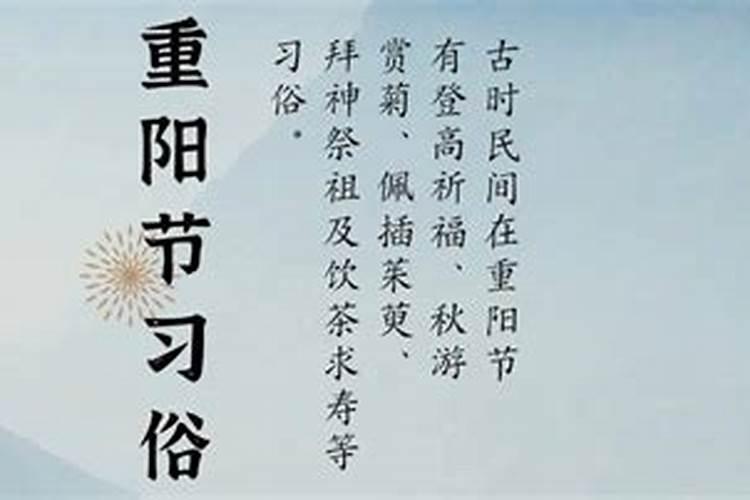 重阳节习俗
古时民间在重阳节
有登高祈福、秋游
赏菊、佩插茱萸、
拜神祭祖及饮茶求寿等
习俗。